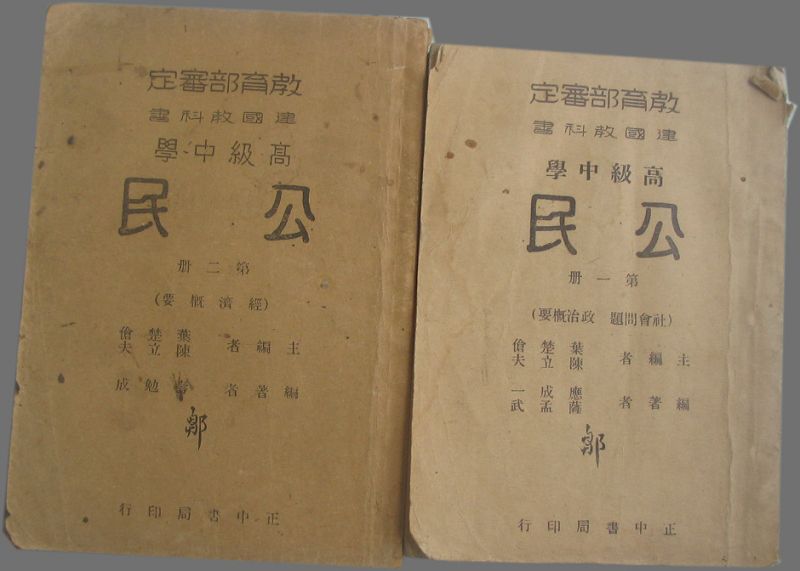 教育部審定
建國教科書
高級中學
公民
第一册
(社會問題 政治概要)
主編者 葉楚傖
陳立夫
編著者 應成一
薩孟武
正中書局印行
教育部審定
建國教科書
高級中學
公民
第二册
(經濟概要)
主編者 葉楚傖
陳立夫
編著者 勉成
正中書局印行